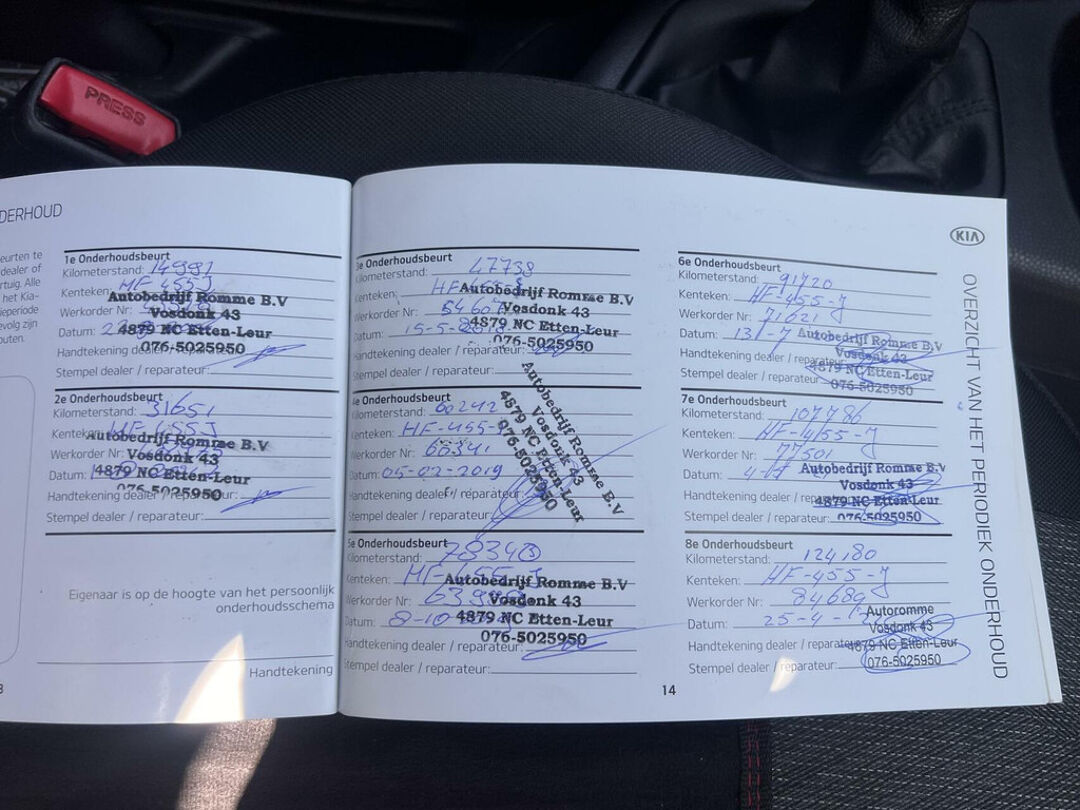 PRESS
NDERHOUD
eurten te
dealer of
rtuig. Alle
het Kia-
ieperiode
evolg zijn
outen.
1e Onderhoudsbeurt
Kilometerstand: 14991
Kenteken: HF 455J
Autobedrijf Romme B.V
Werkorder Nr:
Vosdonk 43
Datum:
4879 NC Etten-Leur
076-5025950
Handtekening dealer / reparateur:
Stempel dealer / reparateur:
2e Onderhoudsbeurt
Kilometerstand: 31651
Kenteken: HF 455J
Autobedrijf Romme B.V
Werkorder Nr:
Vosdonk 43
Datum:
4879 NC Etten-Leur
076-5025950
Handtekening dealer / reparateur:
Stempel dealer / reparateur:
Eigenaar is op de hoogte van het persoonlijk
onderhoudsschema
Handtekening
3e Onderhoudsbeurt
Kilometerstand: 47738
Kenteken:
Autobedrijf Romme B.V
Werkorder Nr:
Vosdonk 43
Datum: 15-5-2018
4879 NC Etten-Leur
076-5025950
Handtekening dealer / reparateur:
Stempel dealer / reparateur:
4e Onderhoudsbeurt
Kilometerstand: 60242
Kenteken: HF-455-
Werkorder Nr: 60341
Datum: 05-02-2019
Handtekening dealer / reparateur:
Stempel dealer / reparateur:
Autobedrijf Romme B.V
Vosdonk 43
4879 NC Etten-Leur
076-5025950
5e Onderhoudsbeurt
Kilometerstand:
Kenteken: HF-455-J
Autobedrijf Romme B.V
Werkorder Nr:
Vosdonk 43
Datum: 8-10
4879 NC Etten-Leur
076-5025950
Handtekening dealer / reparateur:
Stempel dealer / reparateur:
14
KIA
6e Onderhoudsbeurt
Kilometerstand: 91720
Kenteken: HF-455-J
Werkorder Nr: 71621
Datum: 13-7
Autobedrijf Romme B.V
Handtekening dealer / reparateur:
Vosdonk 43
4879 NC Etten-Leur
Stempel dealer / reparateur:
076-5025950
7e Onderhoudsbeurt
Kilometerstand: 107786
Kenteken: HF-455-J
Werkorder Nr: 77501
Datum:
Autobedrijf Romme B.V
Vosdonk 43
Handtekening dealer / reparateur:
4879 NC Etten-Leur
Stempel dealer / reparateur:
076-5025950
8e Onderhoudsbeurt
Kilometerstand: 124,180
Kenteken: HF-455-J
Werkorder Nr: 84689
Datum: 25-4-
Autoromme
Vosdonk 43
Handtekening dealer / reparateur:
4879 NC Etten-Leur
Stempel dealer / reparateur:
076-5025950
OVERZICHT VAN HET PERIODIEK ONDERHOUD